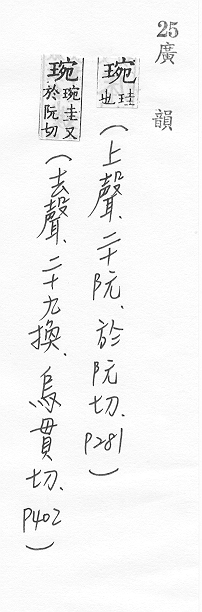 25
廣韻
琬 圭也（上聲．二十阮．於阮切．P281）
琬 琬圭又於阮切（去聲．二十九換．烏貫切．P402）